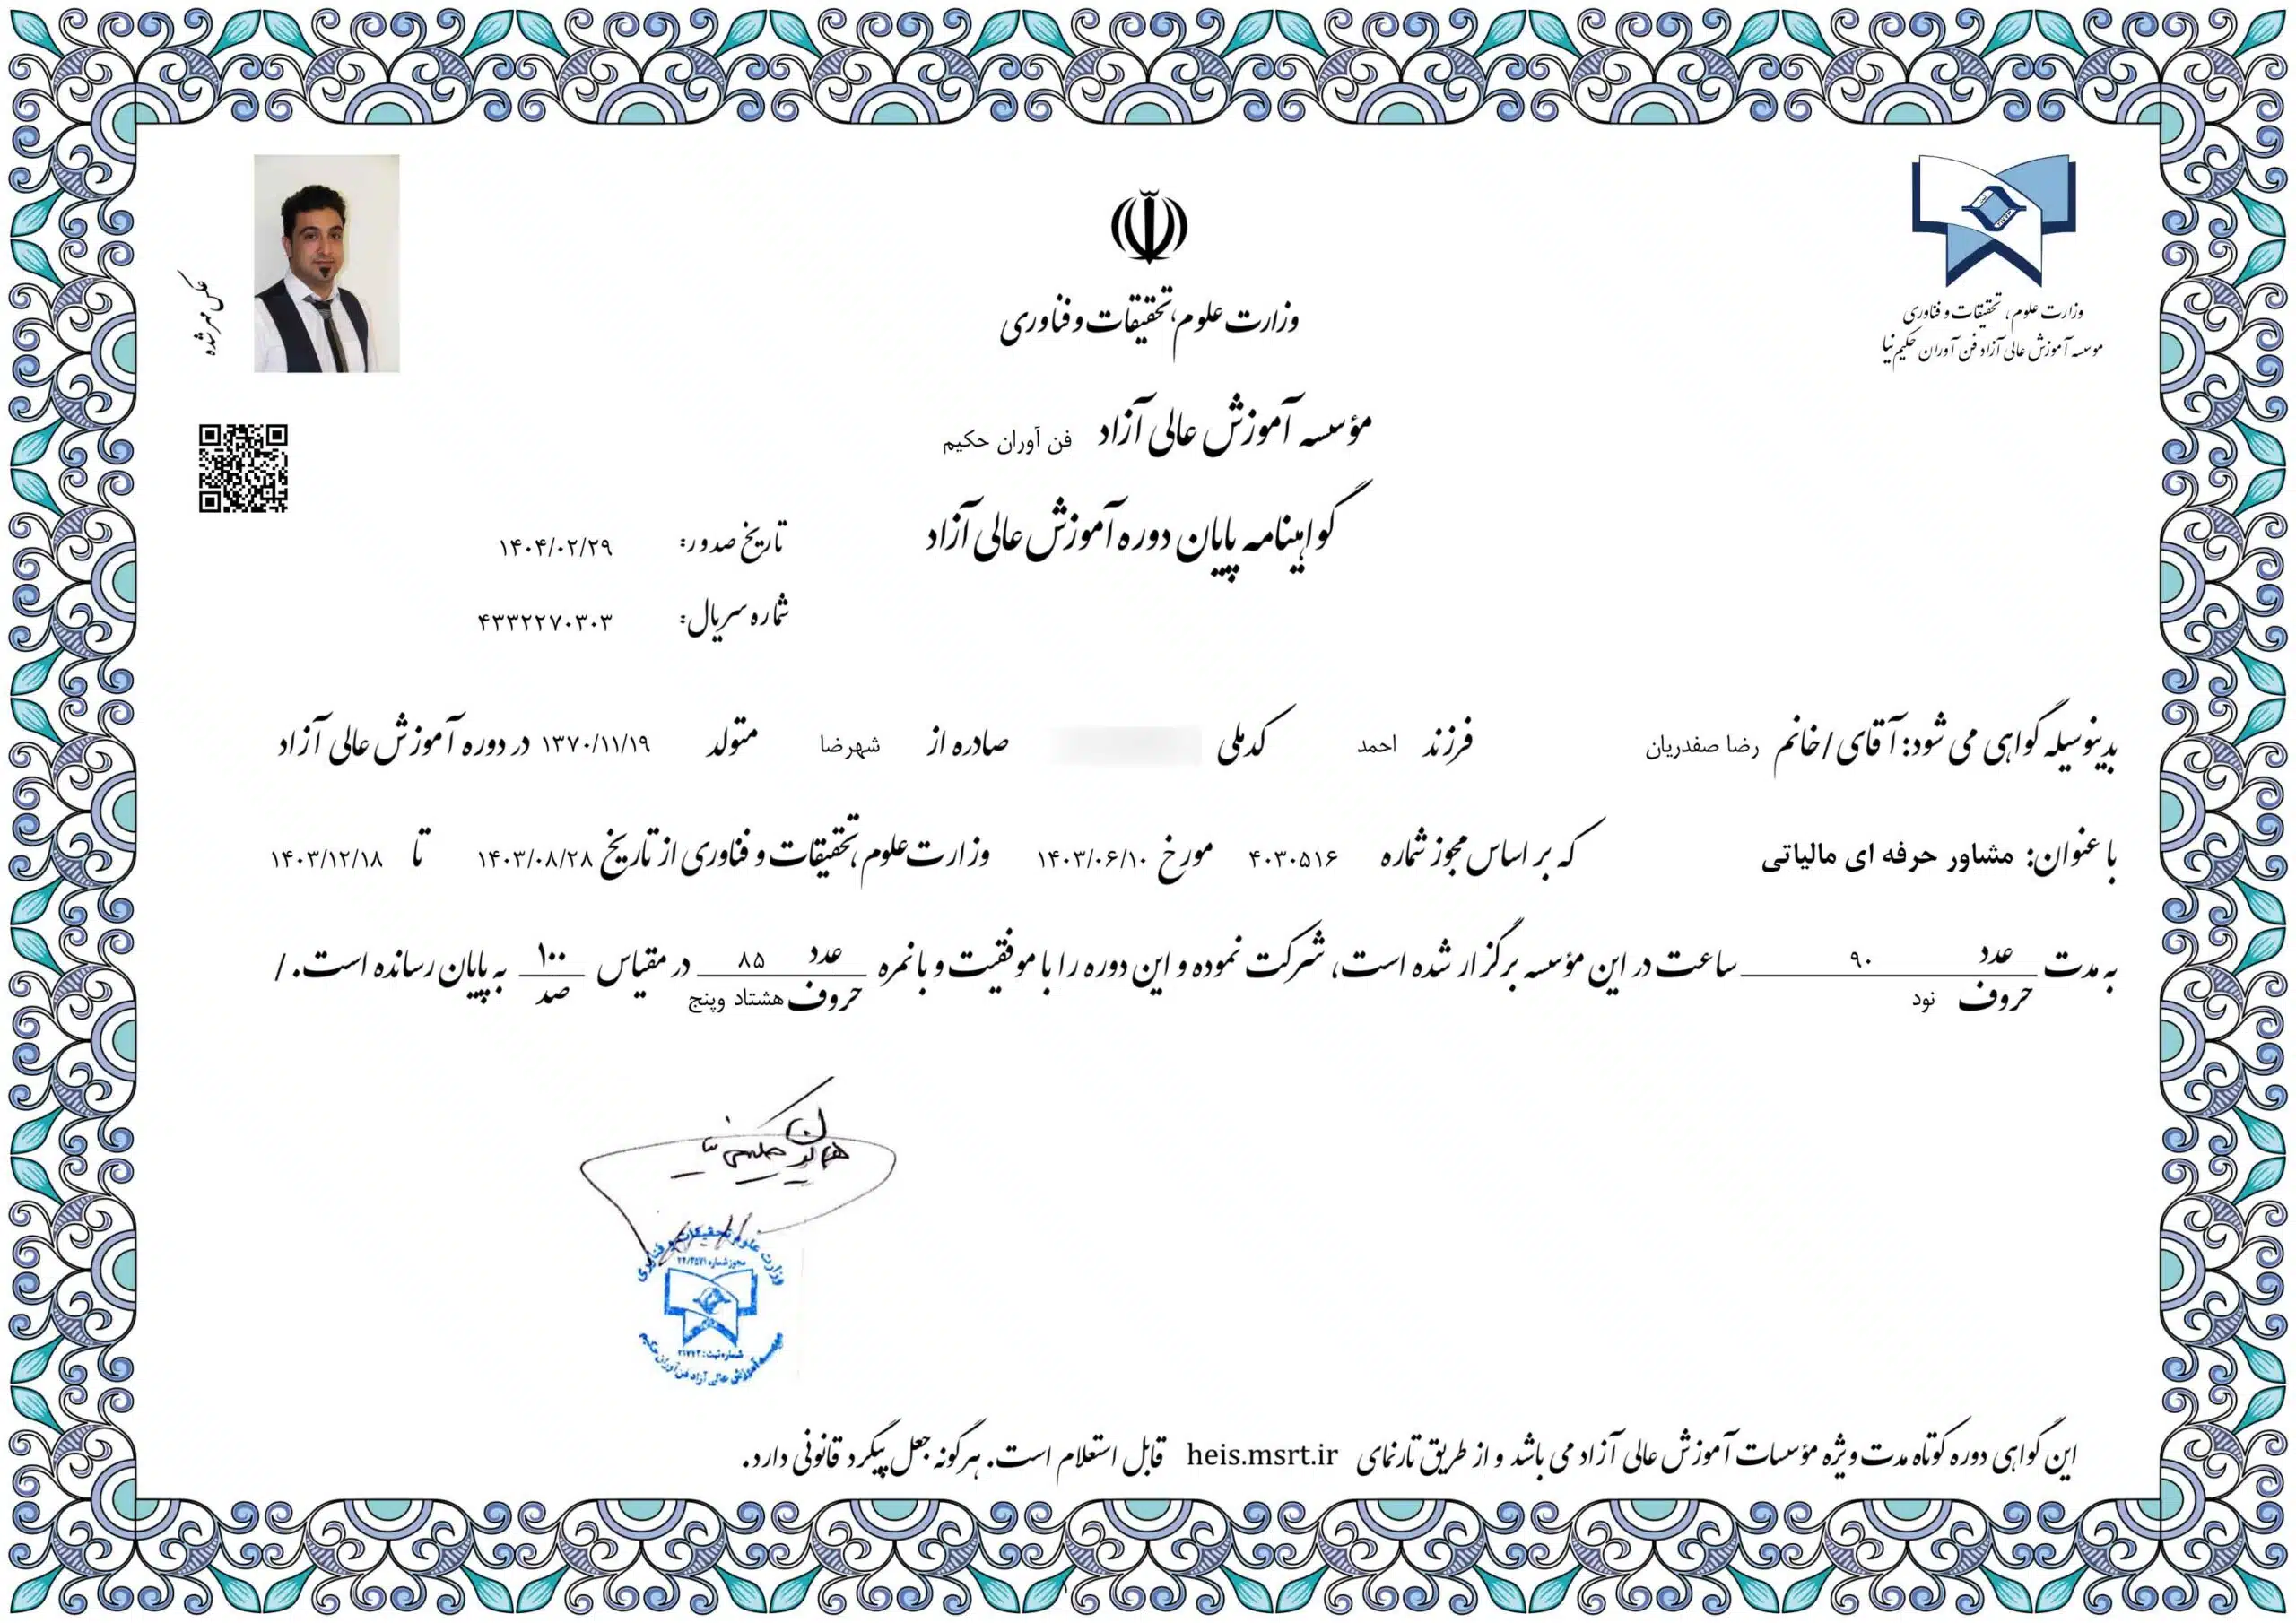 وزارت علوم، تحقیقات و فناوری
موسسه آموزش عالی آزاد فن آوران حکیم نیا
عکس مهر شده
وزارت علوم، تحقیقات و فناوری
مؤسسه آموزش عالی آزاد فن آوران حکیم
گواهینامه پایان دوره آموزش عالی آزاد
تاریخ صدور: ۱۴۰۴/۰۲/۲۹
شماره سریال: ۴۳۳۲۲۷۰۳۰۳
بدینوسیله گواهی می شود: آقای / خانم رضا صفدریان فرزند احمد کدملی صادره از شهرضا متولد ۱۳۷۰/۱۱/۱۹ در دوره آموزش عالی آزاد
با عنوان: مشاور حرفه ای مالیاتی که بر اساس مجوز شماره ۴۰۳۰۵۱۶ مورخ ۱۴۰۳/۰۶/۱۰ وزارت علوم، تحقیقات و فناوری از تاریخ ۱۴۰۳/۰۸/۲۸ تا ۱۴۰۳/۱۲/۱۸
به مدت عدد ۹۰ حروف نود ساعت در این مؤسسه برگزار شده است، شرکت نموده و این دوره را با موفقیت و با نمره عدد ۸۵ حروف هشتاد وپنج در مقیاس ۱۰۰ صد به پایان رسانده است. /
وزارت علوم تحقیقات و فناوری
مجوز شماره ۲۲/۳۵۷۱
شماره ثبت: ۲۱۷۲۳
موسسه آموزش عالی آزاد فن آوران حکیم
این گواهی دوره کوتاه مدت ویژه مؤسسات آموزش عالی آزاد می باشد و از طریق تارنمای heis.msrt.ir قابل استعلام است. هرگونه جعل پیگرد قانونی دارد.